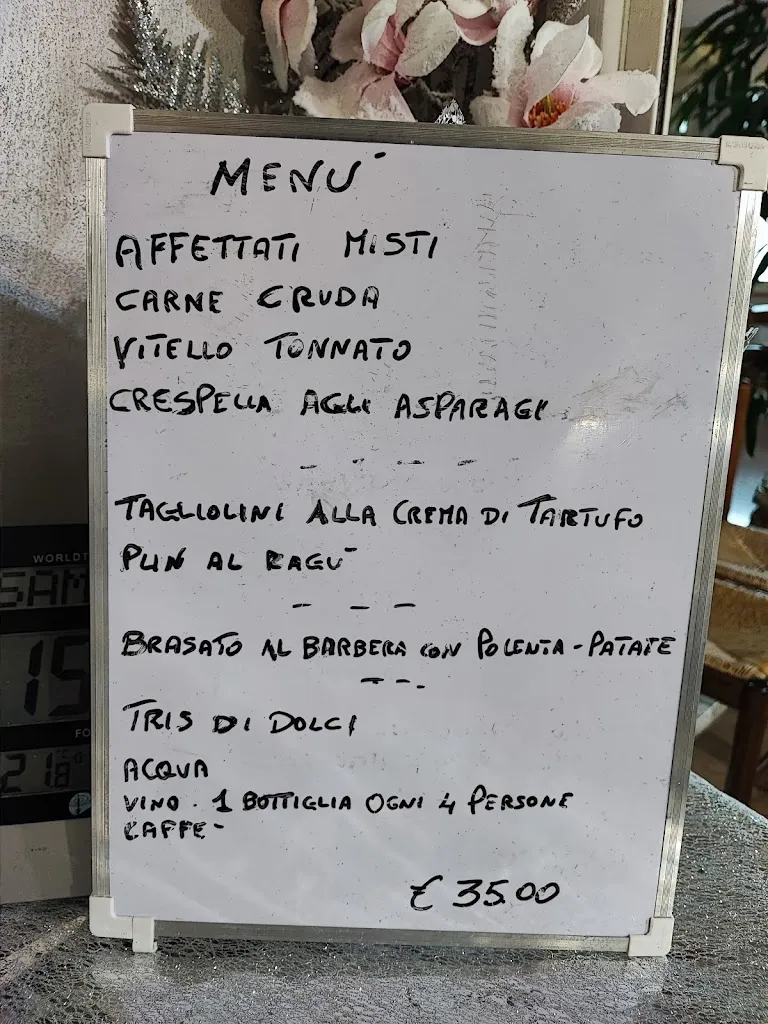 MENU'
AFFETTATI MISTI
CARNE CRUDA
VITELLO TONNATO
CRESPELLA AGLI ASPARAGI
- - - -
TAGLIOLINI ALLA CREMA DI TARTUFO
PLIN AL RAGU'
- - -
BRASATO AL BARBERA CON POLENTA - PATATE
- - -
TRIS DI DOLCI
ACQUA
VINO . 1 BOTTIGLIA OGNI 4 PERSONE
CAFFE'
€ 35.00
WORLDT
SAM
15
FO
21.8°C